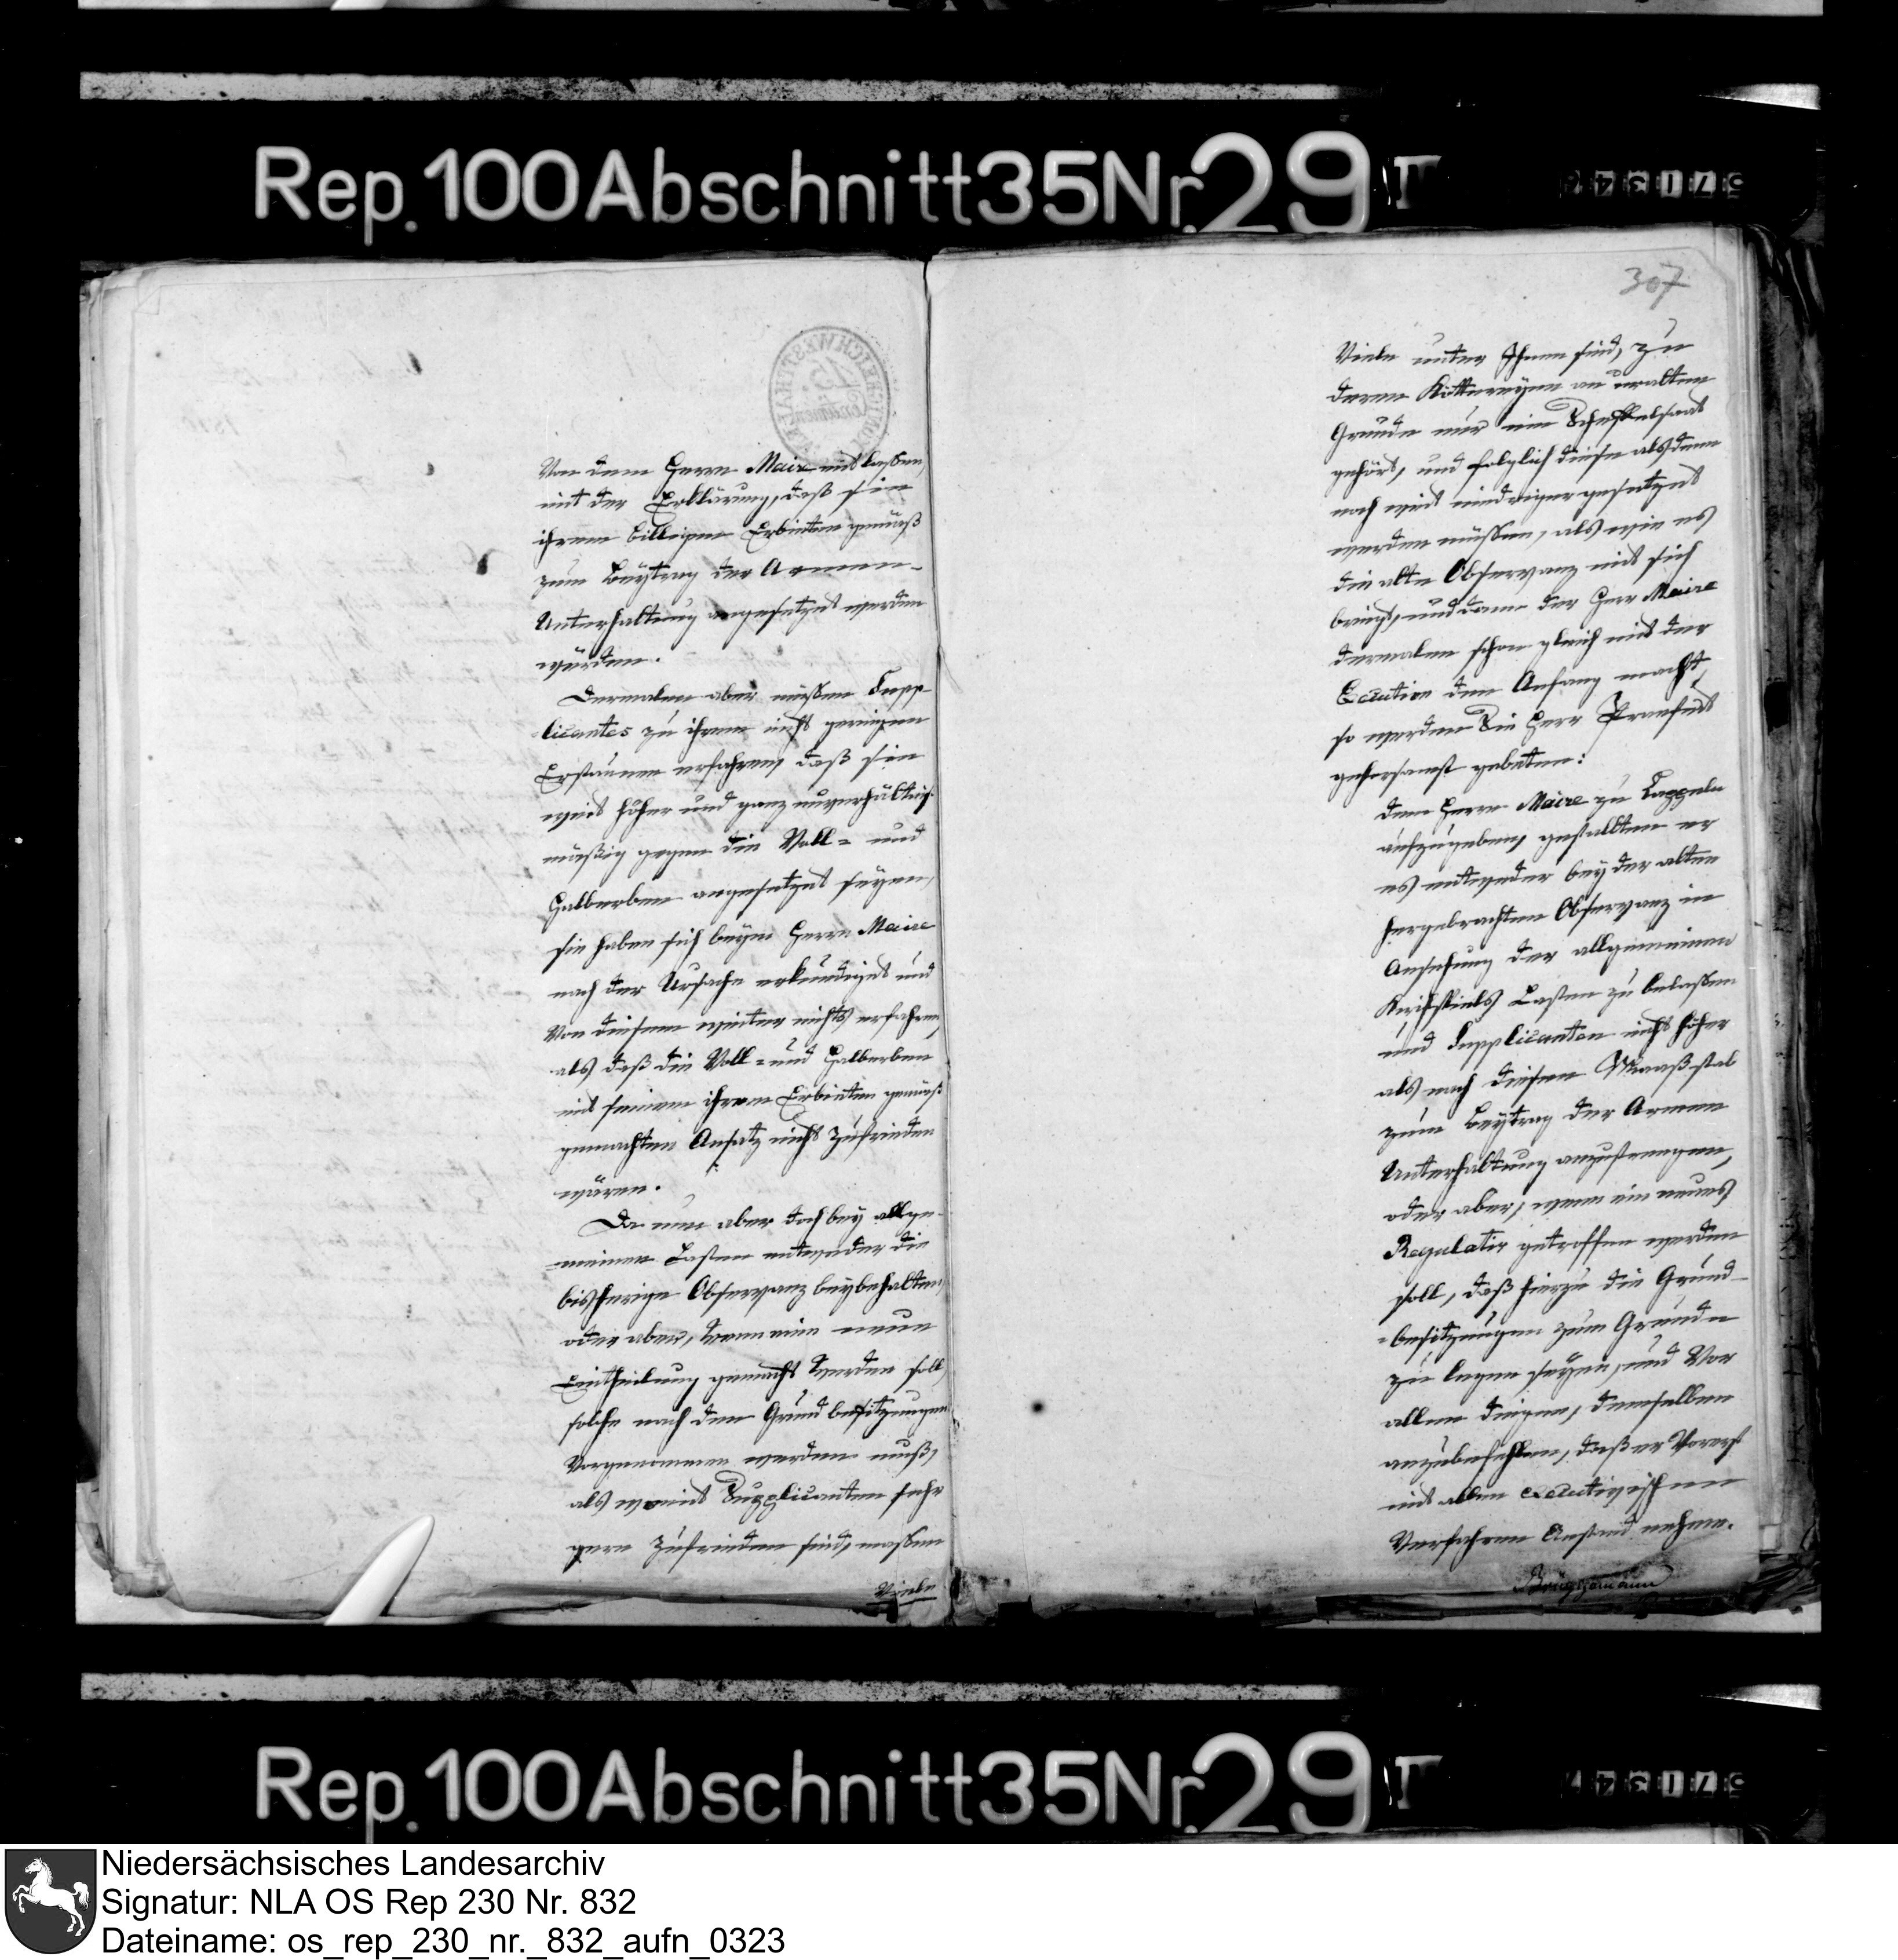 Rep. 100 Abschnitt 35 Nr. 29 I
Von dem Herrn Maire entlassen,
mit der Erklärung, daß sie
ihrem billigen Erbieten gemäß
zum Beytrag der Armen-
Unterhaltung angesetzet werden
würden.
Dermalen aber müssen Supp-
licantes zu ihrem nicht geringen
Erstaunen erfahren, daß sie
weit höher und ganz unverhältniß-
mäßig gegen die Voll= und
Halberben angesetzet seyen,
sie haben sich beym Herrn Maire
nach der Ursache erkundiget und
Von diesem weiter nichts erfahren,
als daß die Voll= und Halberben
mit seinem ihrem Erbieten gemäß
gemachten Ansatz nicht zufrieden
wären.
Da nun aber doch bey allge-
=meinen Lasten entweder die
bisherige Observanz beybehalten,
oder aber, wenn eine neue
Eintheilung gemacht werden soll,
solche nach den Grundbesitzungen
Vorgenommen werden muß,
als womit Supplicanten sehr
gern zufrieden sind, massen
Viele
307
Viele unter Ihnen sind, zu
deren Köttereyen an uralten
Grunde nur ein Scheffelsaat
gehört, und folglich diese alsdenn
noch weit niedriger gesetzet
werden müssen, als wie es
die alte Observanz mit sich
bringt, und dann der Herr Maire
dermalen schon gleich mit der
Execution den Anfang macht,
so werden Sie Herr Praefect
gehorsamst gebeten:
dem Herrn Maire zu Cappeln
aufzugeben, gestallten er
es entweder bey der alten
hergebrachten Observanz in
Ansehung der allgemeinen
Kirchspiels Lasten zu belassen
und Supplicanten nicht höher
als nach diesen Maaßstab
zum Beytrag der Armen
Unterhaltung anzustrengen,
oder aber, wenn ein neues
Regulativ getroffen werden
soll, daß hierzu die Grund-
=besitzungen zum Grunde
zu legen seyen, und Vor
allen dingen, demselben
anzubefehlen, daß er Vorerst
mit allen executivischen
Verfahren Anstand nehme.
Brüggemann
Rep. 100 Abschnitt 35 Nr. 29 I
Niedersächsisches Landesarchiv
Signatur: NLA OS Rep 230 Nr. 832
Dateiname: os_rep_230_nr._832_aufn_0323